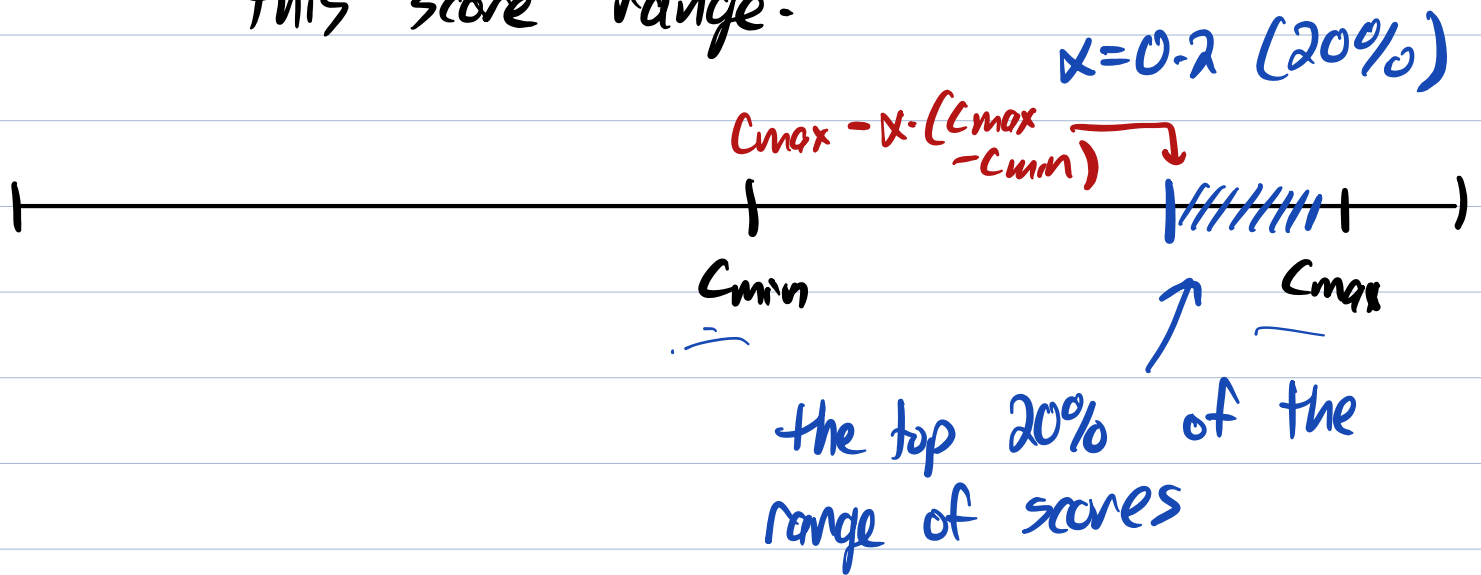 this score range.
α=0.2 (20%)
Cmax - α·(Cmax
-Cmin)
Cmin
Cmax
the top 20% of the
range of scores